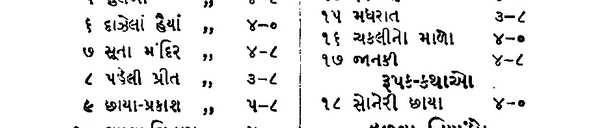 ૬ દાઝેલાં હૈયાં ,, ૪-૦
૭ સૂતા મંદિર ,, ૪-૮
૮ પડેલી પ્રીત ,, ૩-૮
૯ છાયા-પ્રકાશ ,, ૫-૮
૧૫ મધરાત ૩-૮
૧૬ ચકલીનો માળો ૪-૦
૧૭ જાનકી ૪-૮
રૂપક-કથાઓ
૧૮ સોનેરી છાયા ૪-૦